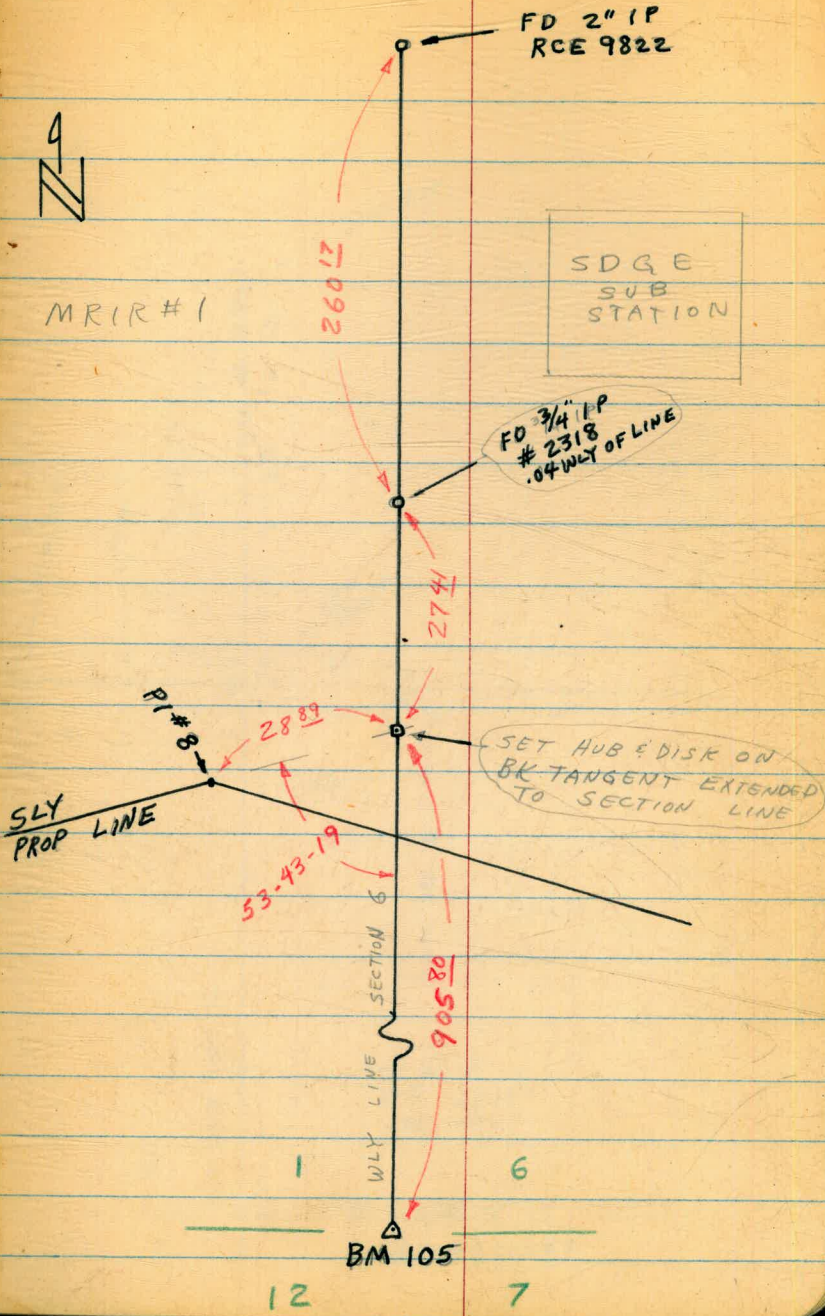 FD 2" IP
RCE 9822
N
260 17
SDGE
SUB
STATION
MRIR #1
FD 3/4" IP
# 2318
.04 WLY OF LINE
27 41
PI #8
28 89
SET HUB & DISK ON
BK TANGENT EXTENDED
TO SECTION LINE
SLY
PROP LINE
53-43-19
WLY LINE SECTION 6
905 80
1
6
BM 105
12
7